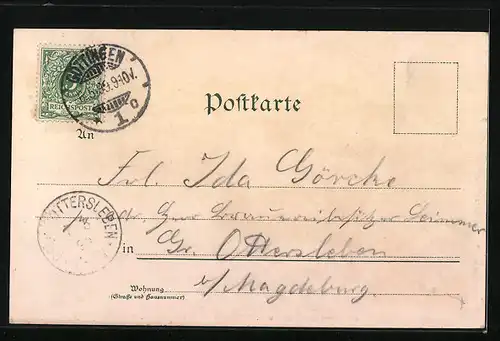 GÖTTINGEN
9-10V.
REICHSPOST
1 c
Postkarte
An
Frl. Ida Görcke
Gr. Ottersleben
in
b/Magdeburg.
OTTERSLEBEN
Wohnung
(Straße und Hausnummer)